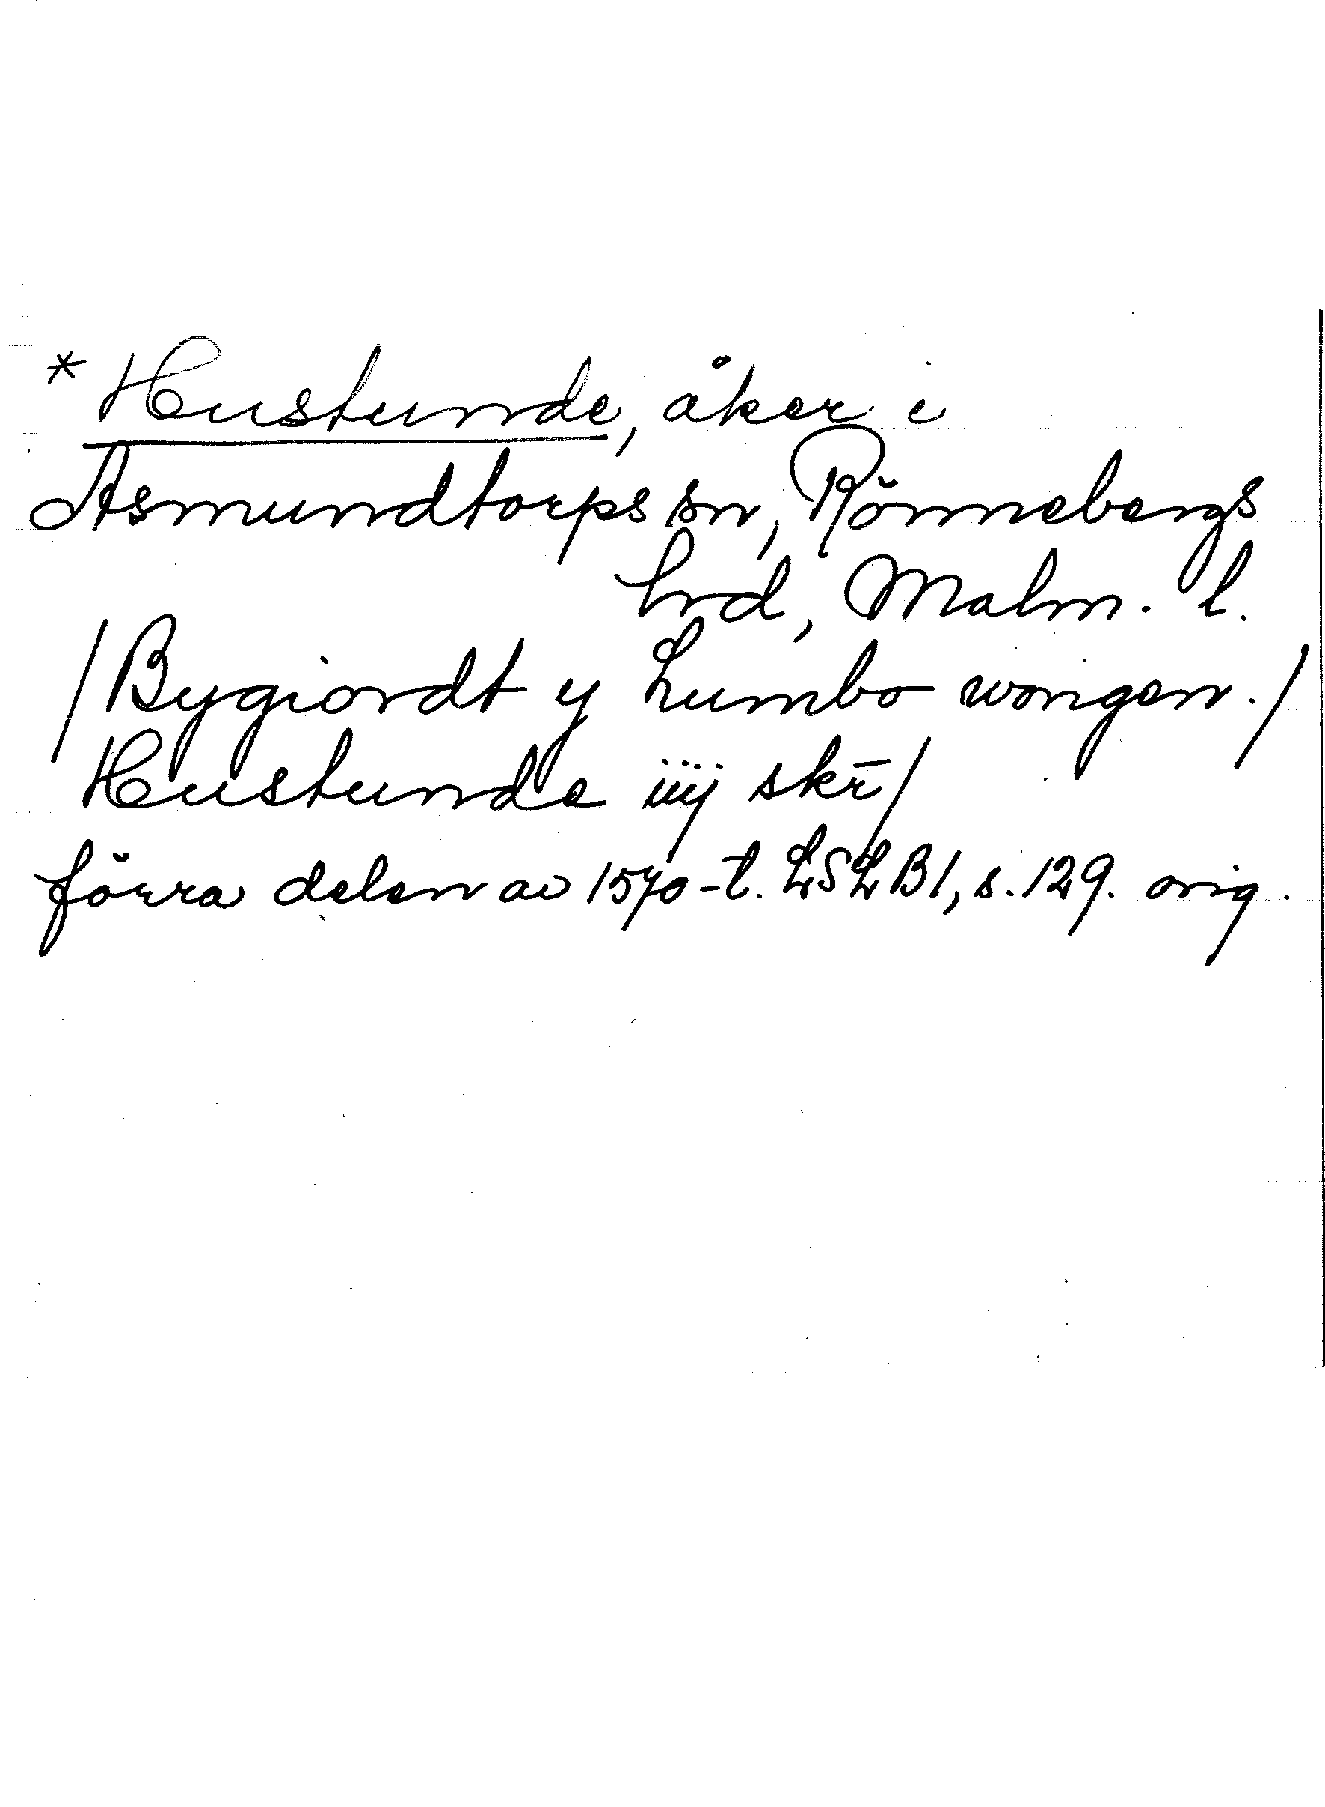 * Hustunde, åker i
Asmundtorps sn, Rönnebergs
hrd, Malm. l.
/Bygiordt y Lumbo wongen./
Hustunde iiij skr̄/
förra delen av 1570-t. LSLB1, s. 129. orig.